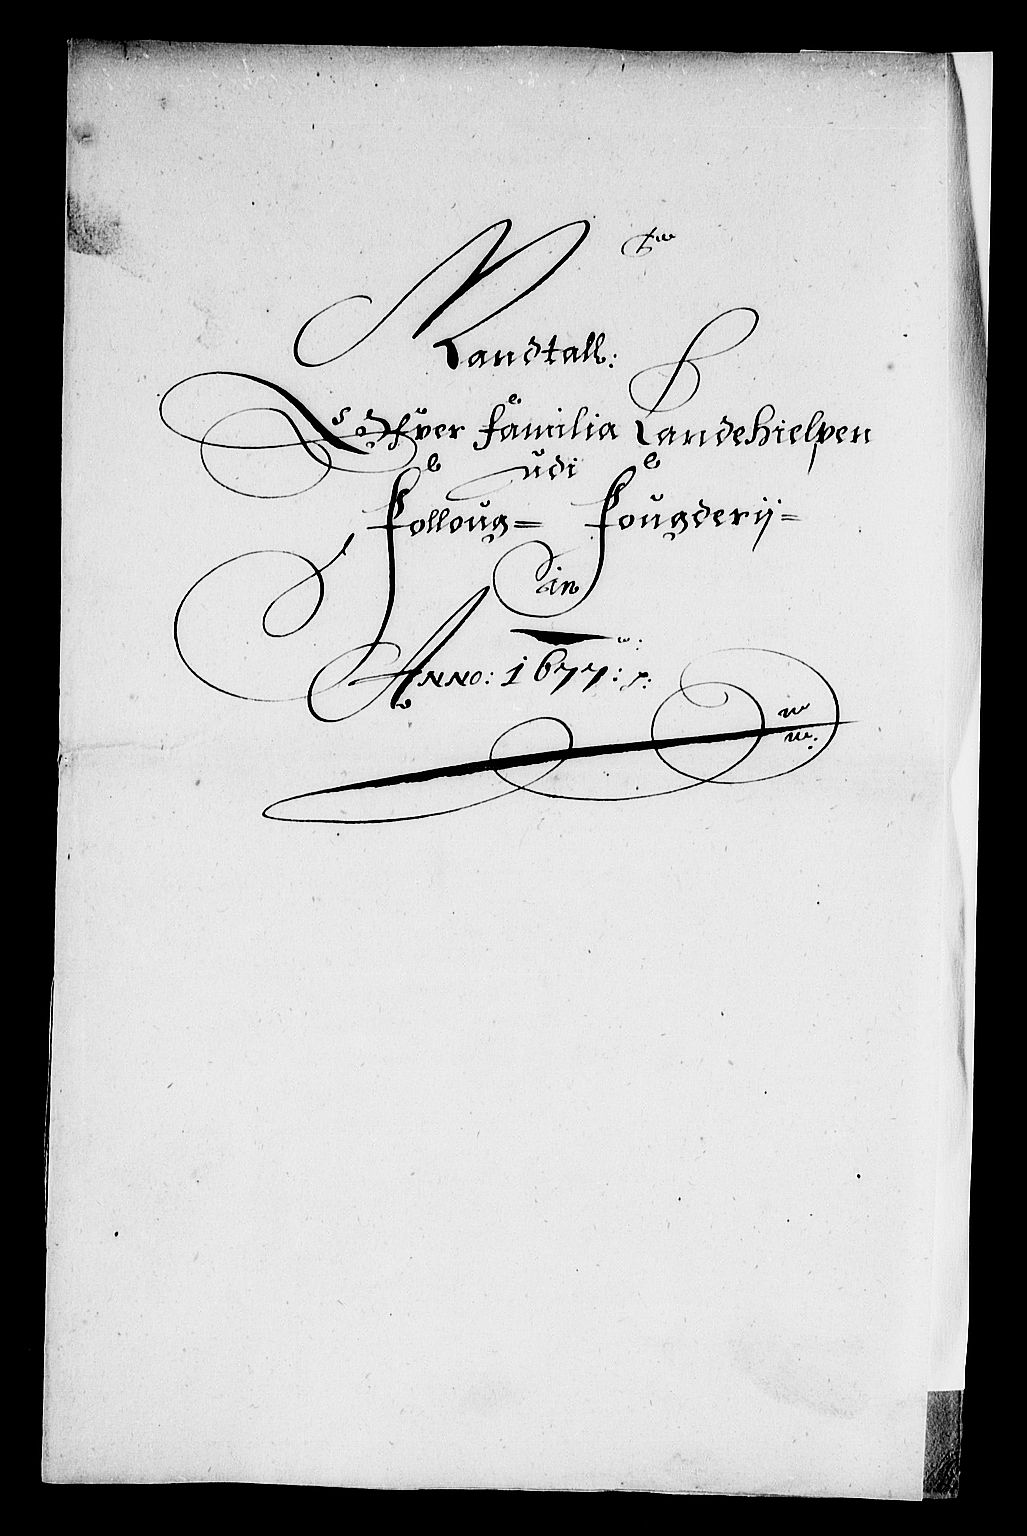 Mandtall:
Ofver familia Landehielpen
udi
Folloug= Fougderij=
in
Anno: 1677: